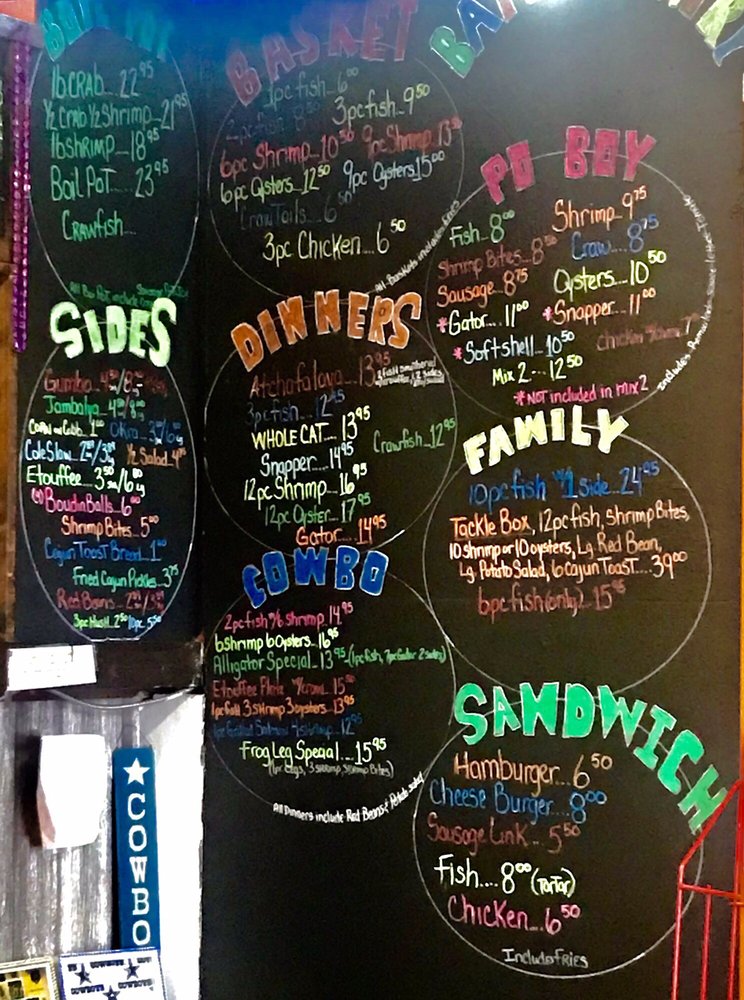 BOIL POT
1lb CRAB... 22.95
1/2 CRAB 1/2 Shrimp... 21.95
1lb shrimp... 18.95
Boil Pot.... 23.95
Crawfish...
BASKET
1pc fish... 6.00
2pc fish... 8.50
3pc fish... 9.50
6pc Shrimp... 10.50
9pc Shrimp... 13.50
6pc Oysters... 12.50
9pc Oysters 15.00
CrawTails... 6.50
3pc Chicken... 6.50
All Baskets includes Fries
PO BOY
Fish... 8.00
Shrimp... 9.75
Shrimp Bites... 8.50
Craw... 8.75
Sausage... 8.75
Oysters... 10.50
*Gator.... 11.00
*Snapper... 11.00
*Softshell... 10.50
Mix 2.... 12.50
*NOT included in mix 2
SIDES
Gumbo... 4.50/8.00
Jambalya... 4.50/8.00
Corn on Cobb... 1.00
Okra... 3.00/6.00
Cole Slaw... 2.00/3.00
1/2 Salad... 4.00
Etouffee... 3.50/6.00
Boudin Balls... 6.00
Shrimp Bites... 5.00
Cajun Toast Bread... 1.00
Fried Cajun Pickles... 3.75
Red Beans...
3pc Hush... 2.50 10pc. 5.50
DINNERS
Atchafalaya.... 13.95
3pc fish... 12.95
WHOLE CAT.... 13.95
Crawfish... 12.95
Snapper.... 14.95
12pc Shrimp... 16.95
12pc Oyster... 17.95
Gator... 14.95
FAMILY
10pc fish w/1 side... 24.95
Tackle Box, 12pc fish, Shrimp Bites,
10 shrimp or 10 oysters, Lg. Red Bean,
Lg. Potato Salad, 6 Cajun Toast.... 39.00
6pc fish (only)... 15.95
COMBO
2pc fish w/6 shrimp 14.95
6 shrimp 6 Oysters... 16.95
Alligator Special... 13.95 (1pc fish, 7pc Gator 2 sides)
1pc fish 3 Shrimp 3 oysters... 13.95
Frog Leg Special.... 15.95
All Dinners include Red Beans & Potato salad
SANDWICH
Hamburger... 6.50
Cheese Burger... 8.00
Sausage Link... 5.50
Fish.... 8.00 (Tartar)
Chicken... 6.50
Includes Fries
COWBO